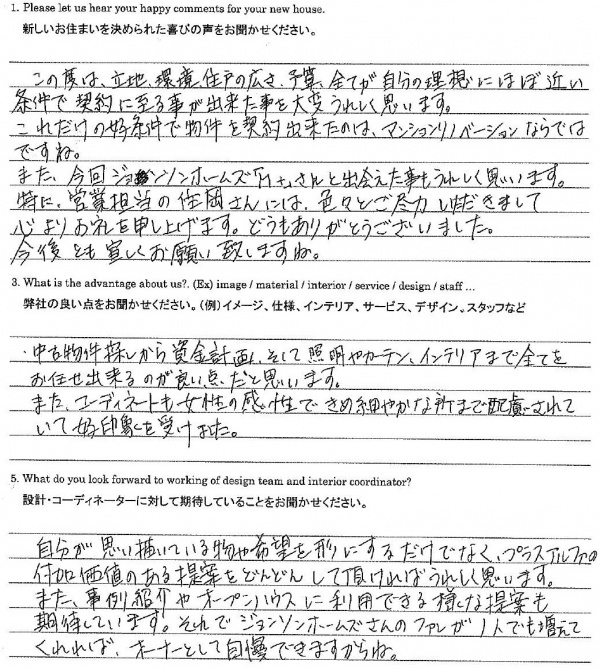 1. Please let us hear your happy comments for your new house.
新しいお住まいを決められた喜びの声をお聞かせください。
この度は、立地、環境、住戸の広さ、予算、全てが自分の理想にほぼ近い
条件で契約に至る事が出来た事を大変うれしく思います。
これだけの好条件で物件を契約出来たのは、マンションリノベーションならでは
ですね。
また、今回ジョンソンホームズ さんと出会えた事もうれしく思います。
特に、営業担当の住岡さんには、色々とご尽力いただきまして
心よりお礼を申し上げます。どうもありがとうございました。
今後とも宜しくお願い致しますね。
3. What is the advantage about us?. (Ex) image / material / interior / service / design / staff ...
弊社の良い点をお聞かせください。（例）イメージ、仕様、インテリア、サービス、デザイン。スタッフなど
・中古物件探しから資金計画、そして照明やカーテン、インテリアまで全てを
お任せ出来るのが良い点だと思います。
また、コーディネートも女性の感性できめ細やかな所まで配慮されて
いて好印象を受けました。
5. What do you look forward to working of design team and interior coordinator?
設計・コーディネーターに対して期待していることをお聞かせください。
自分が思い描いている物や希望を形にするだけでなく、プラスアルファの
付加価値のある提案をどんどんして頂ければうれしく思います。
また、事例紹介やオープンハウスに利用できる様な提案も
期待しています。それでジョンソンホームズさんのファンが1人でも増えて
くれれば、オーナーとして自慢できますからね。